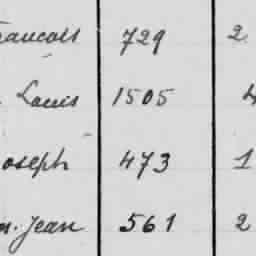 rancois 729 2
Louis 1505 4
oseph 473 1
n. Jean 561 2